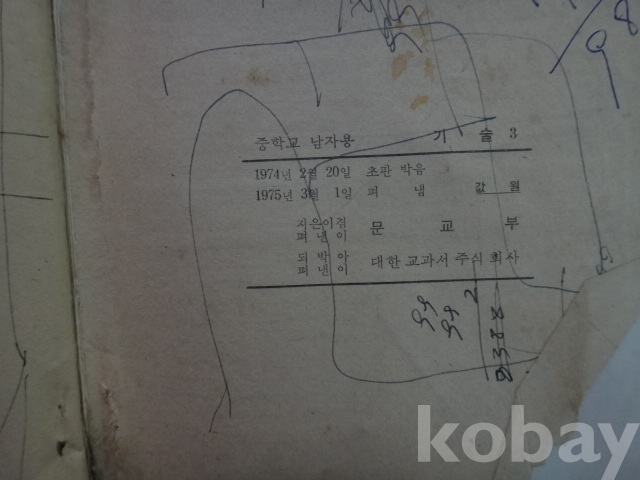 98
중학교 남자용 기 술 3
1974년 2월 20일 초판 박음
1975년 3월 1일 펴 냄 값 원
지은이겸
펴 낸 이 문 교 부
되 박 아
펴 낸 이 대한 교과서 주식 회사
kobay